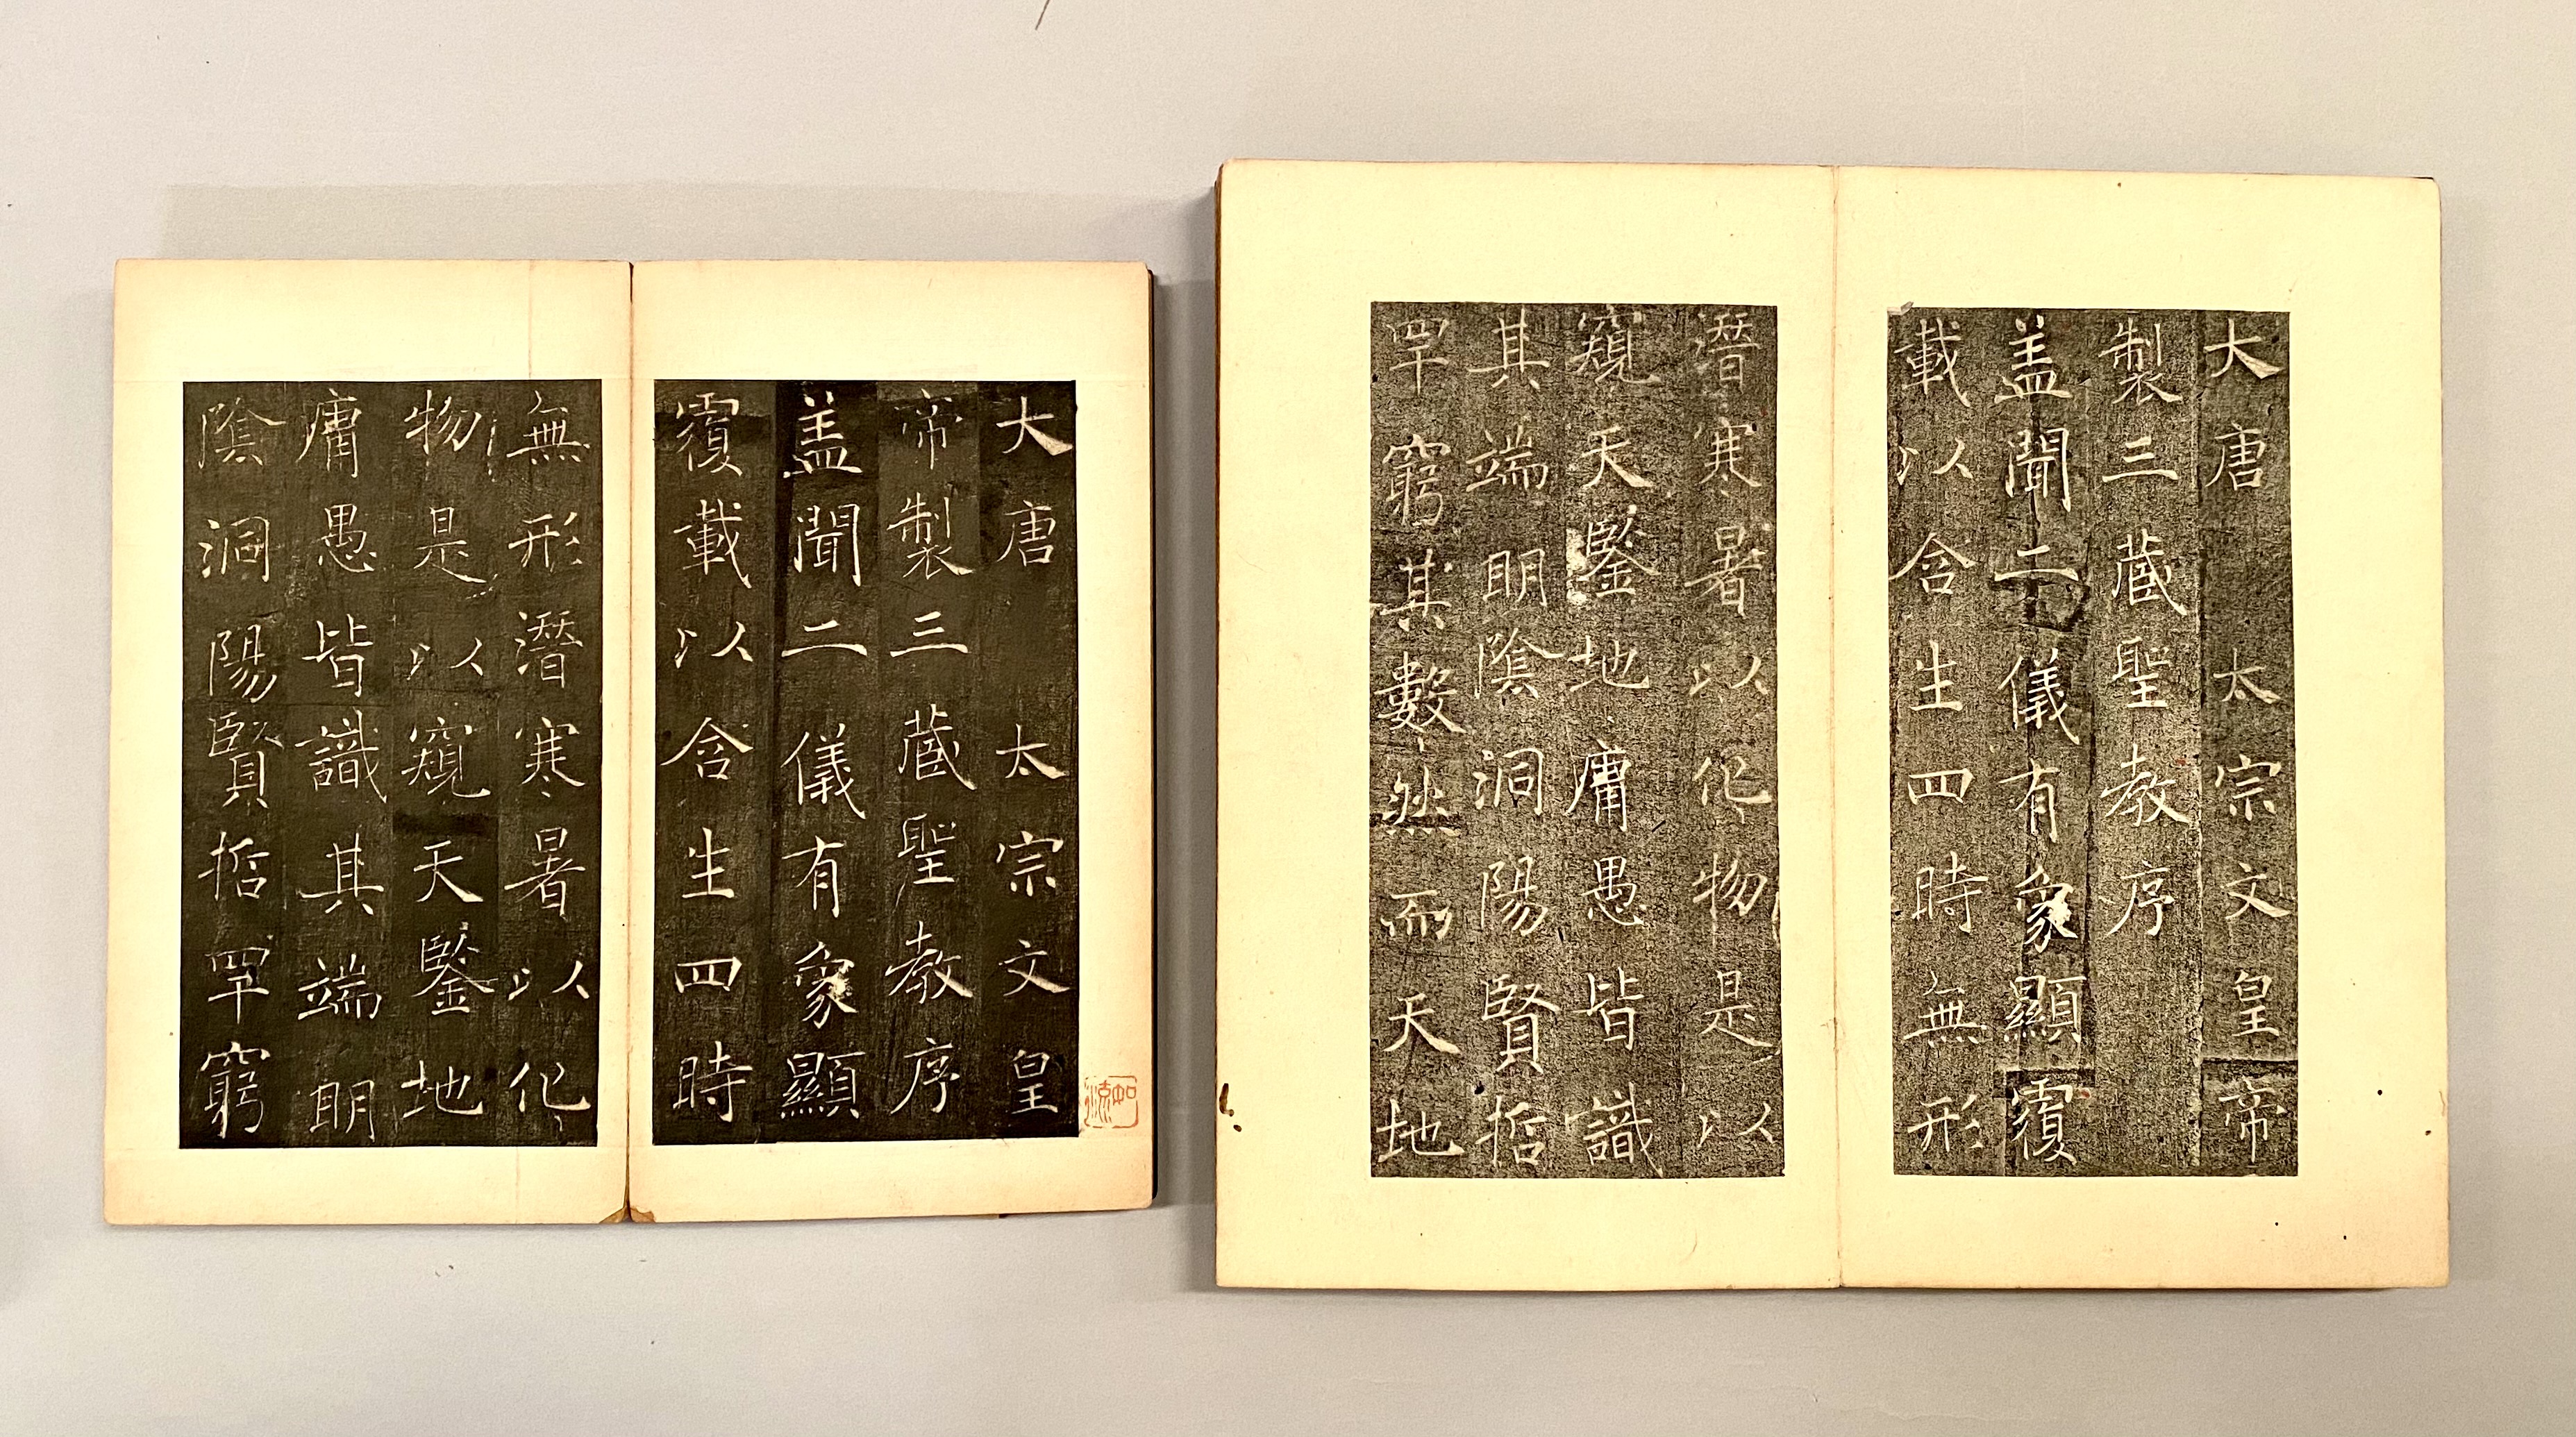 大唐太宗文皇
帝製三藏聖教序
盖聞二儀有象顯
覆載以含生四時
無形潛寒暑以化
物是以窺天鑒地
庸愚皆識其端明
陰洞陽賢哲罕窮
大唐太宗文皇帝
製三藏聖教序
盖聞二儀有象顯覆
載以含生四時無形
潛寒暑以化物是以
窺天鑒地庸愚皆識
其端明陰洞陽賢哲
罕窮其數然而天地